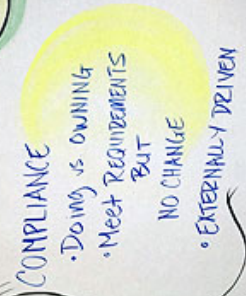 COMPLIANCE
• Doing vs OWNING
• Meet REQUIREMENTS
BUT
NO CHANGE
• EXTERNALLY DRIVEN